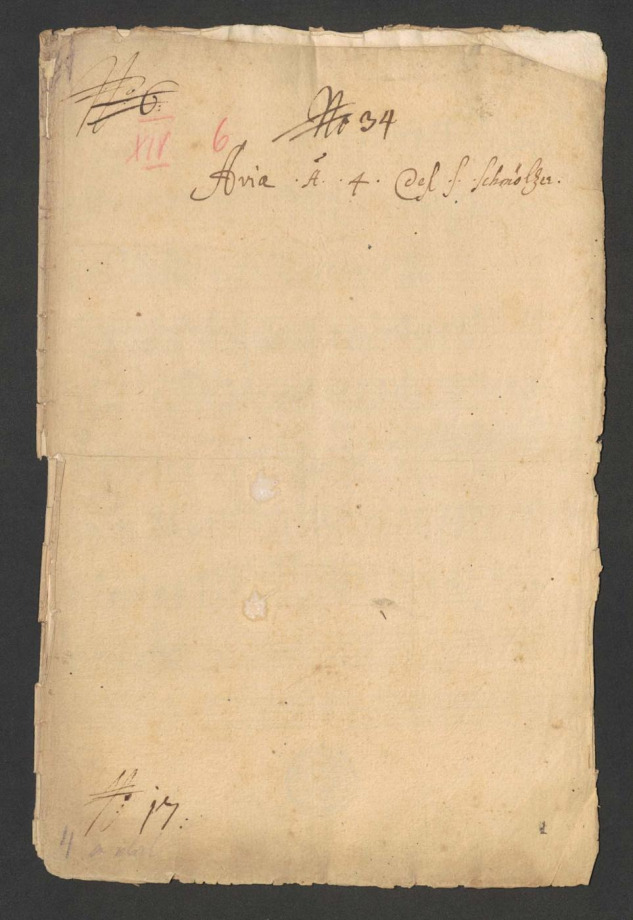 No 6:
XIV 6
No 34
Aria . à . 4 . Del S. Schmelzer.
No: 17.
4